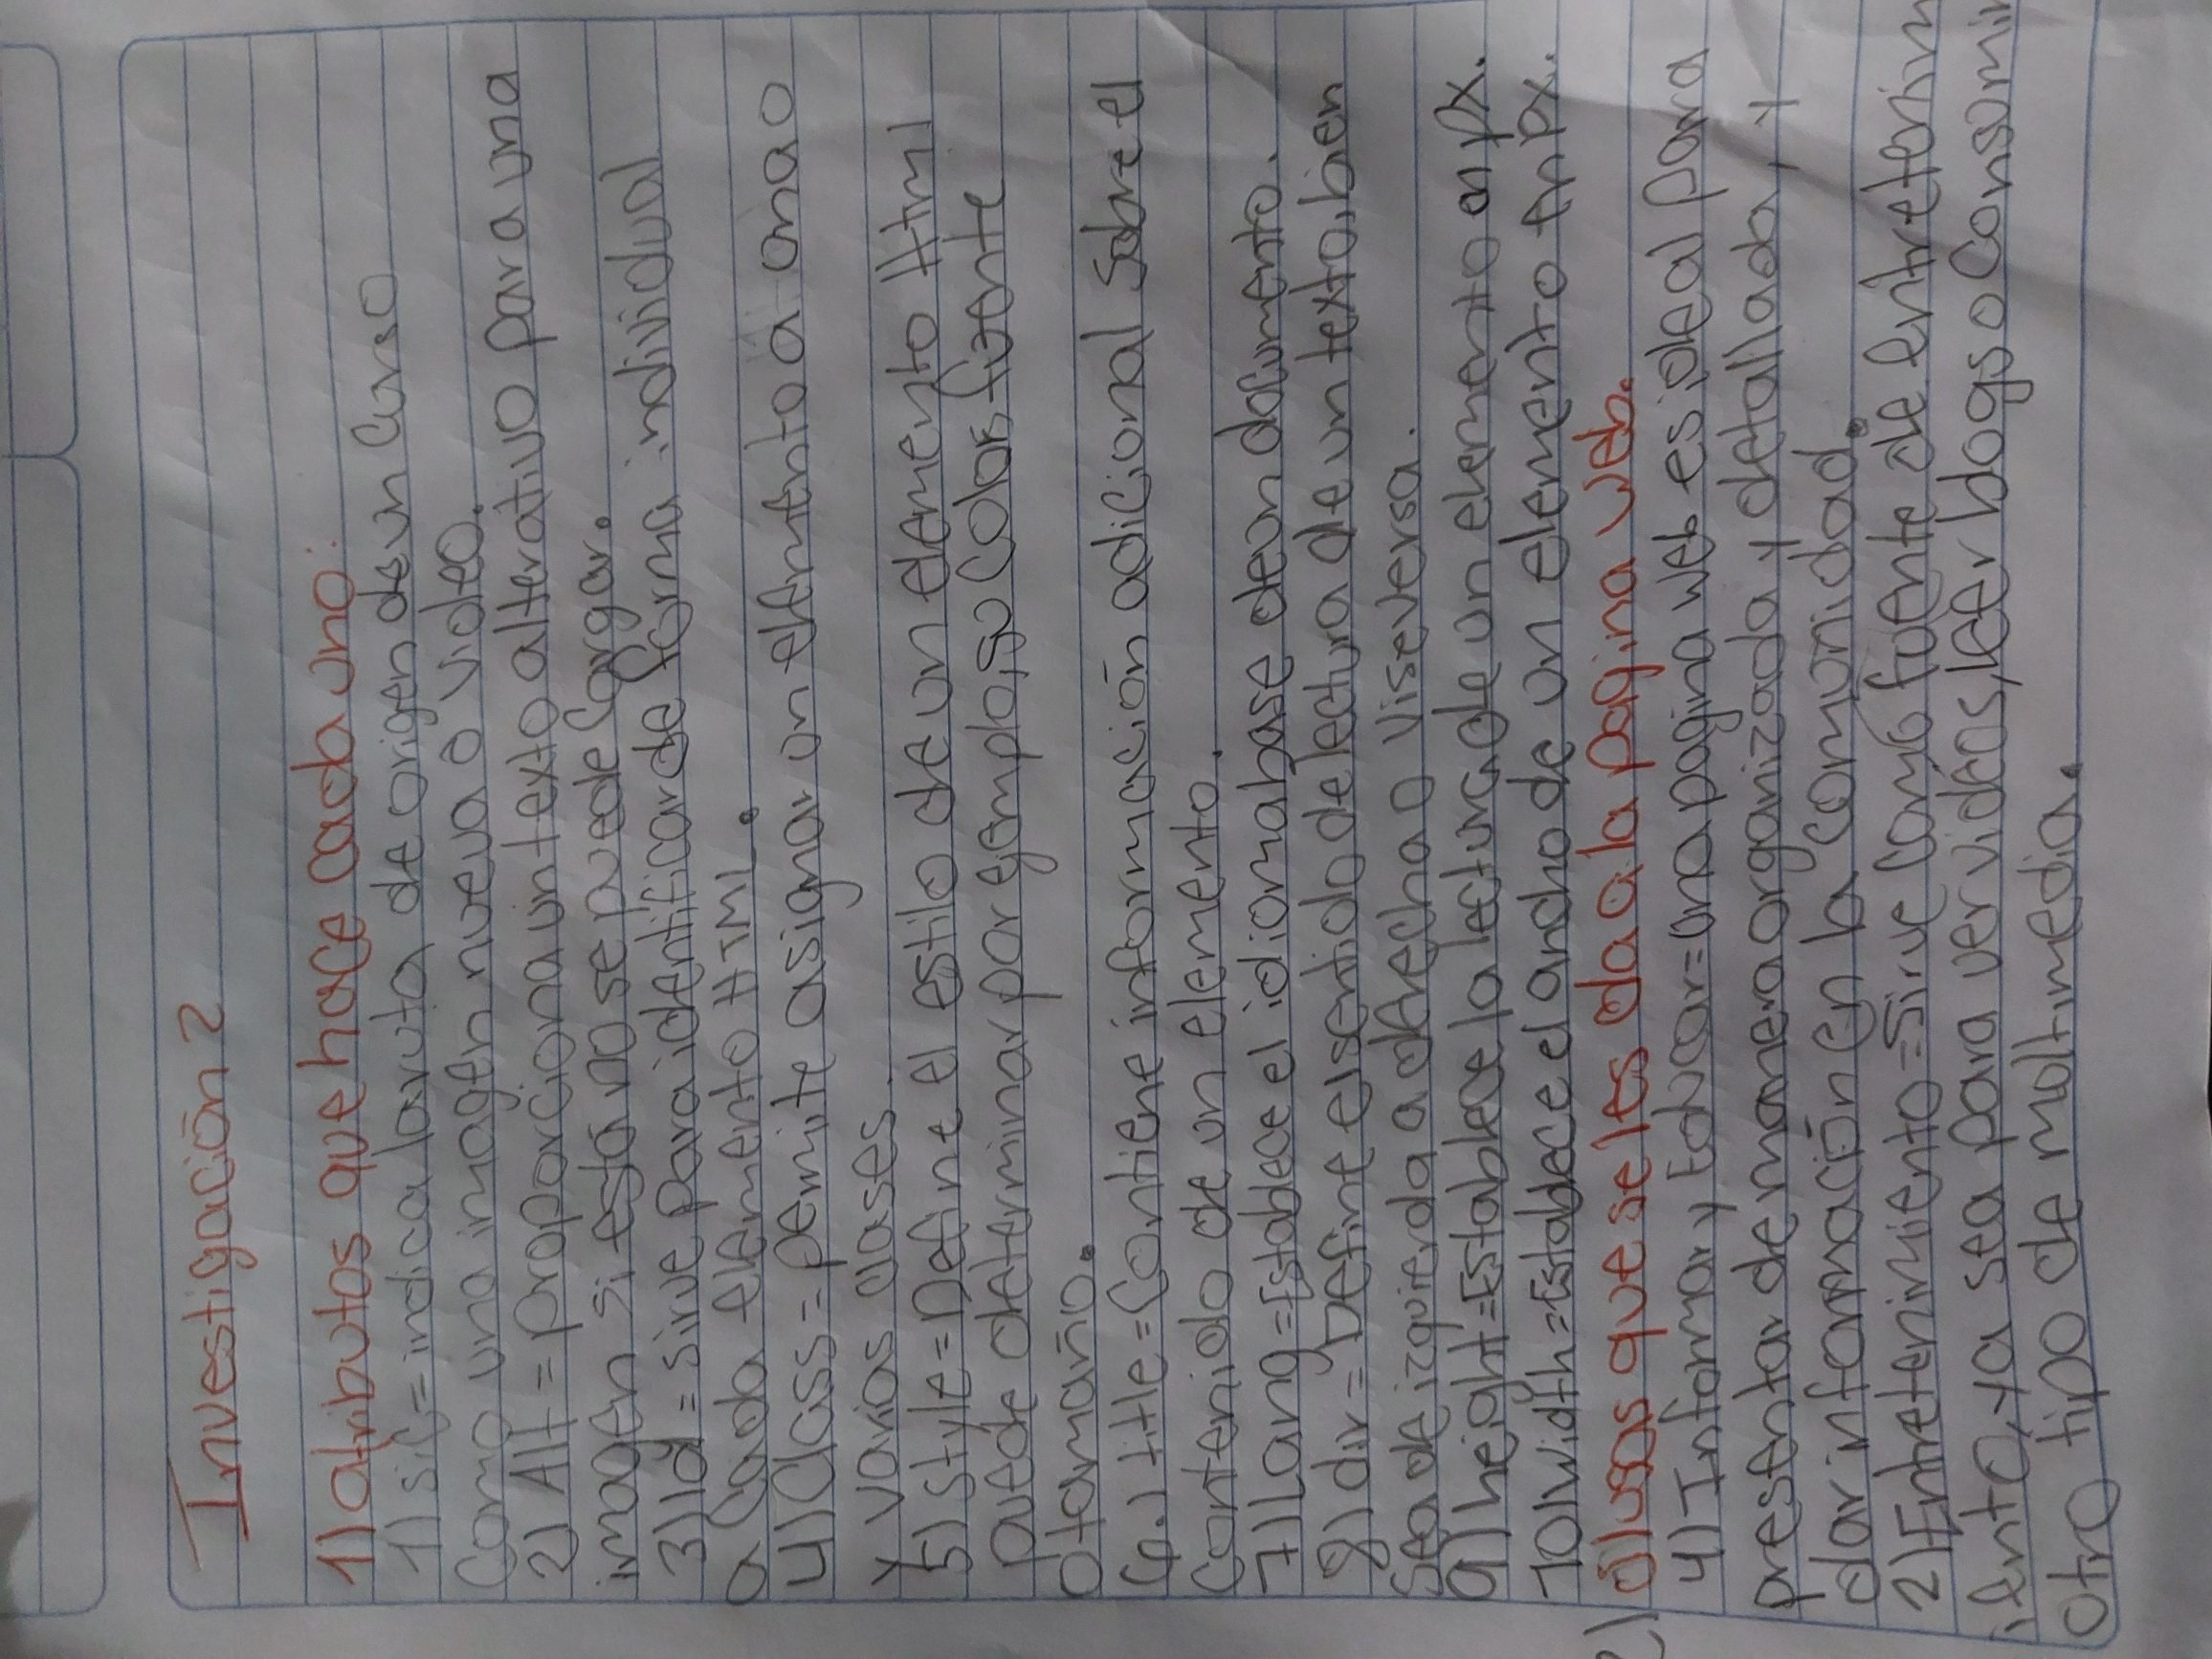 Investigación 2
1) atributos que hace cada uno:
1) src = indica la ruta de origen de un curso
Como una imagen nueva o video.
2) Alt = proporciona un texto alterativo para una
imagen si esta no se puede Cargar.
3) Id = sirve para identificar de forma individual
a Cada elemento HTML.
4) Class = pemite asignar un elemento a una o
y varias clases.
5) style = Define el estilo de un elemento Html
puede determinar por ejemplo, su Color, fuente
o tamaño.
6.) title = Contiene información adicional sobre el
Contenido de un elemento.
7) Lang = Establece el idioma base de un documento.
8) dir = Define el sentido de lectura de un texto, bien
Sea de izquierda a derecha o viseversa.
9) height = Establece la lectura de un elemento en px.
10) width = Establece el ancho de un elemento en px.
2) usos que se les da a la pagina web.
4) Informar y Educar = una pagina web es ideal para
presentar de manera organizada y detallada, y
dar información en la Comunidad.
2) Entretenimiento = Sirve Como fuente de Entretenim
iento, ya sea para ver videos, leer blogs o Consumir
otro tipo de moltimedia.